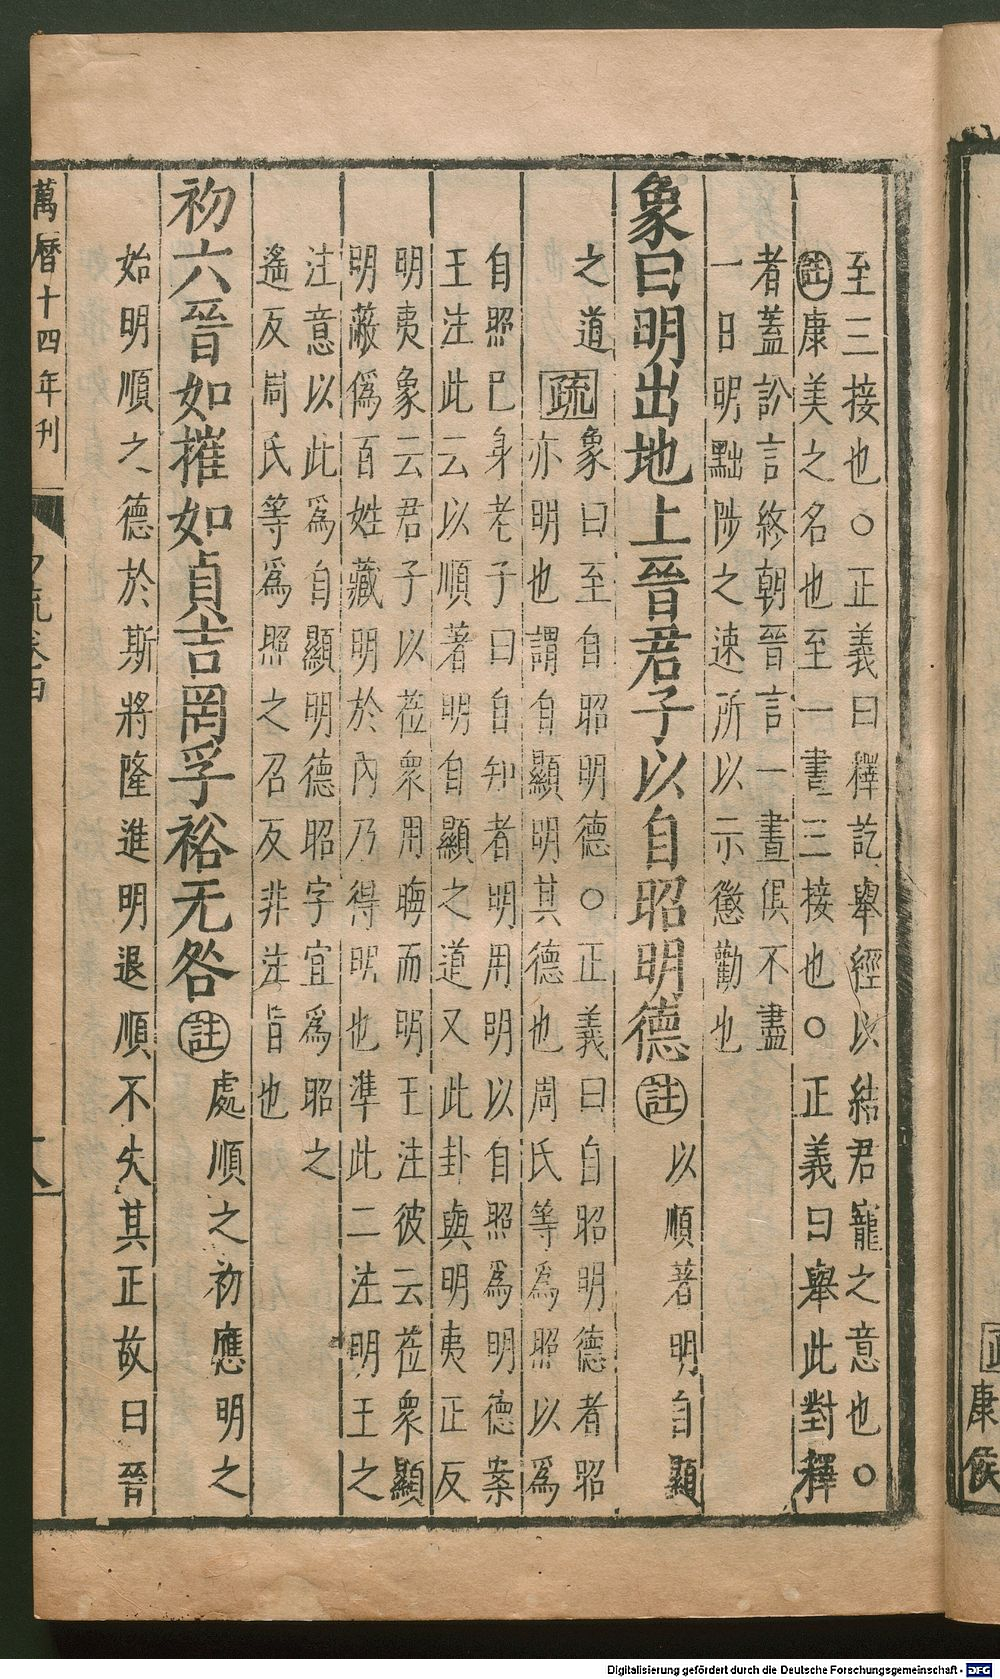 至三接也○正義曰釋訖舉經以結君寵之意也○
註康美之名也至一晝三接也○正義曰舉此對釋
者蓋訟言終朝晉言一晝俱不盡
一日明黜陟之速所以示懲勸也
象曰明出地上晉君子以自昭明德註以順著明自顯
之道
疏象曰至自昭明德○正義曰自昭明德者昭
亦明也謂自顯明其德也周氏等為照以為
自照已身老子曰自知者明用明以自照為明德案
王注此云以順著明自顯之道又此卦與明夷正反
明夷象云君子以莅衆用晦而明王注彼云莅衆顯
明蔽偽百姓藏明於內乃得明也準此二注明王之
注意以此為自顯明德昭字宜為昭之
遙反周氏等為照之召反非注旨也
初六晉如摧如貞吉罔孚裕无咎註處順之初應明之
始明順之德於斯將隆進明退順不失其正故曰晉
萬曆十四年刊
疏
康侯
Digitalisierung gefördert durch die Deutsche Forschungsgemeinschaft - DFG